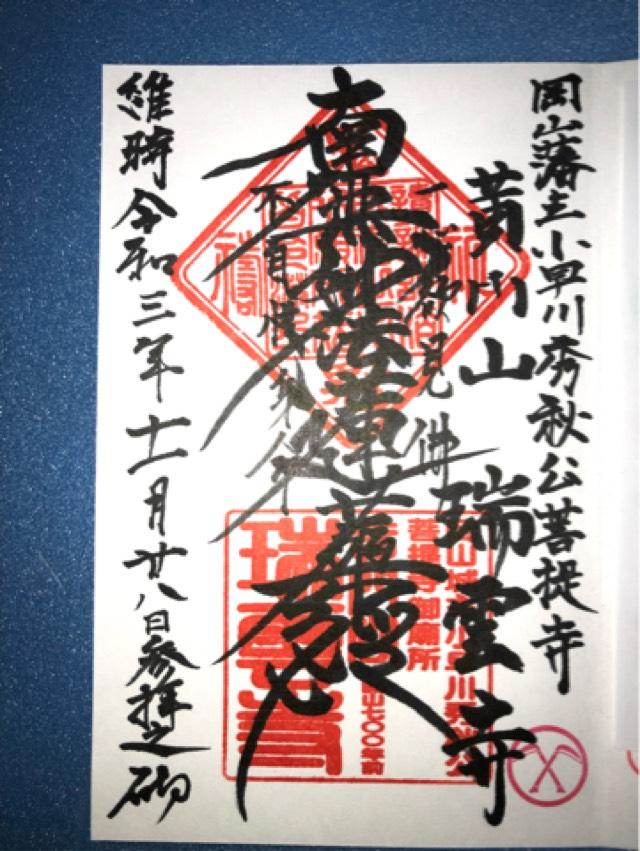 岡山藩主小早川秀秋公菩提寺
黄門山 瑞雲寺
一心欲見佛
南無妙法蓮華経
不自惜身命
維時令和三年十一月廿八日参拝之砌
瑞雲寺
菩提寺御廟所